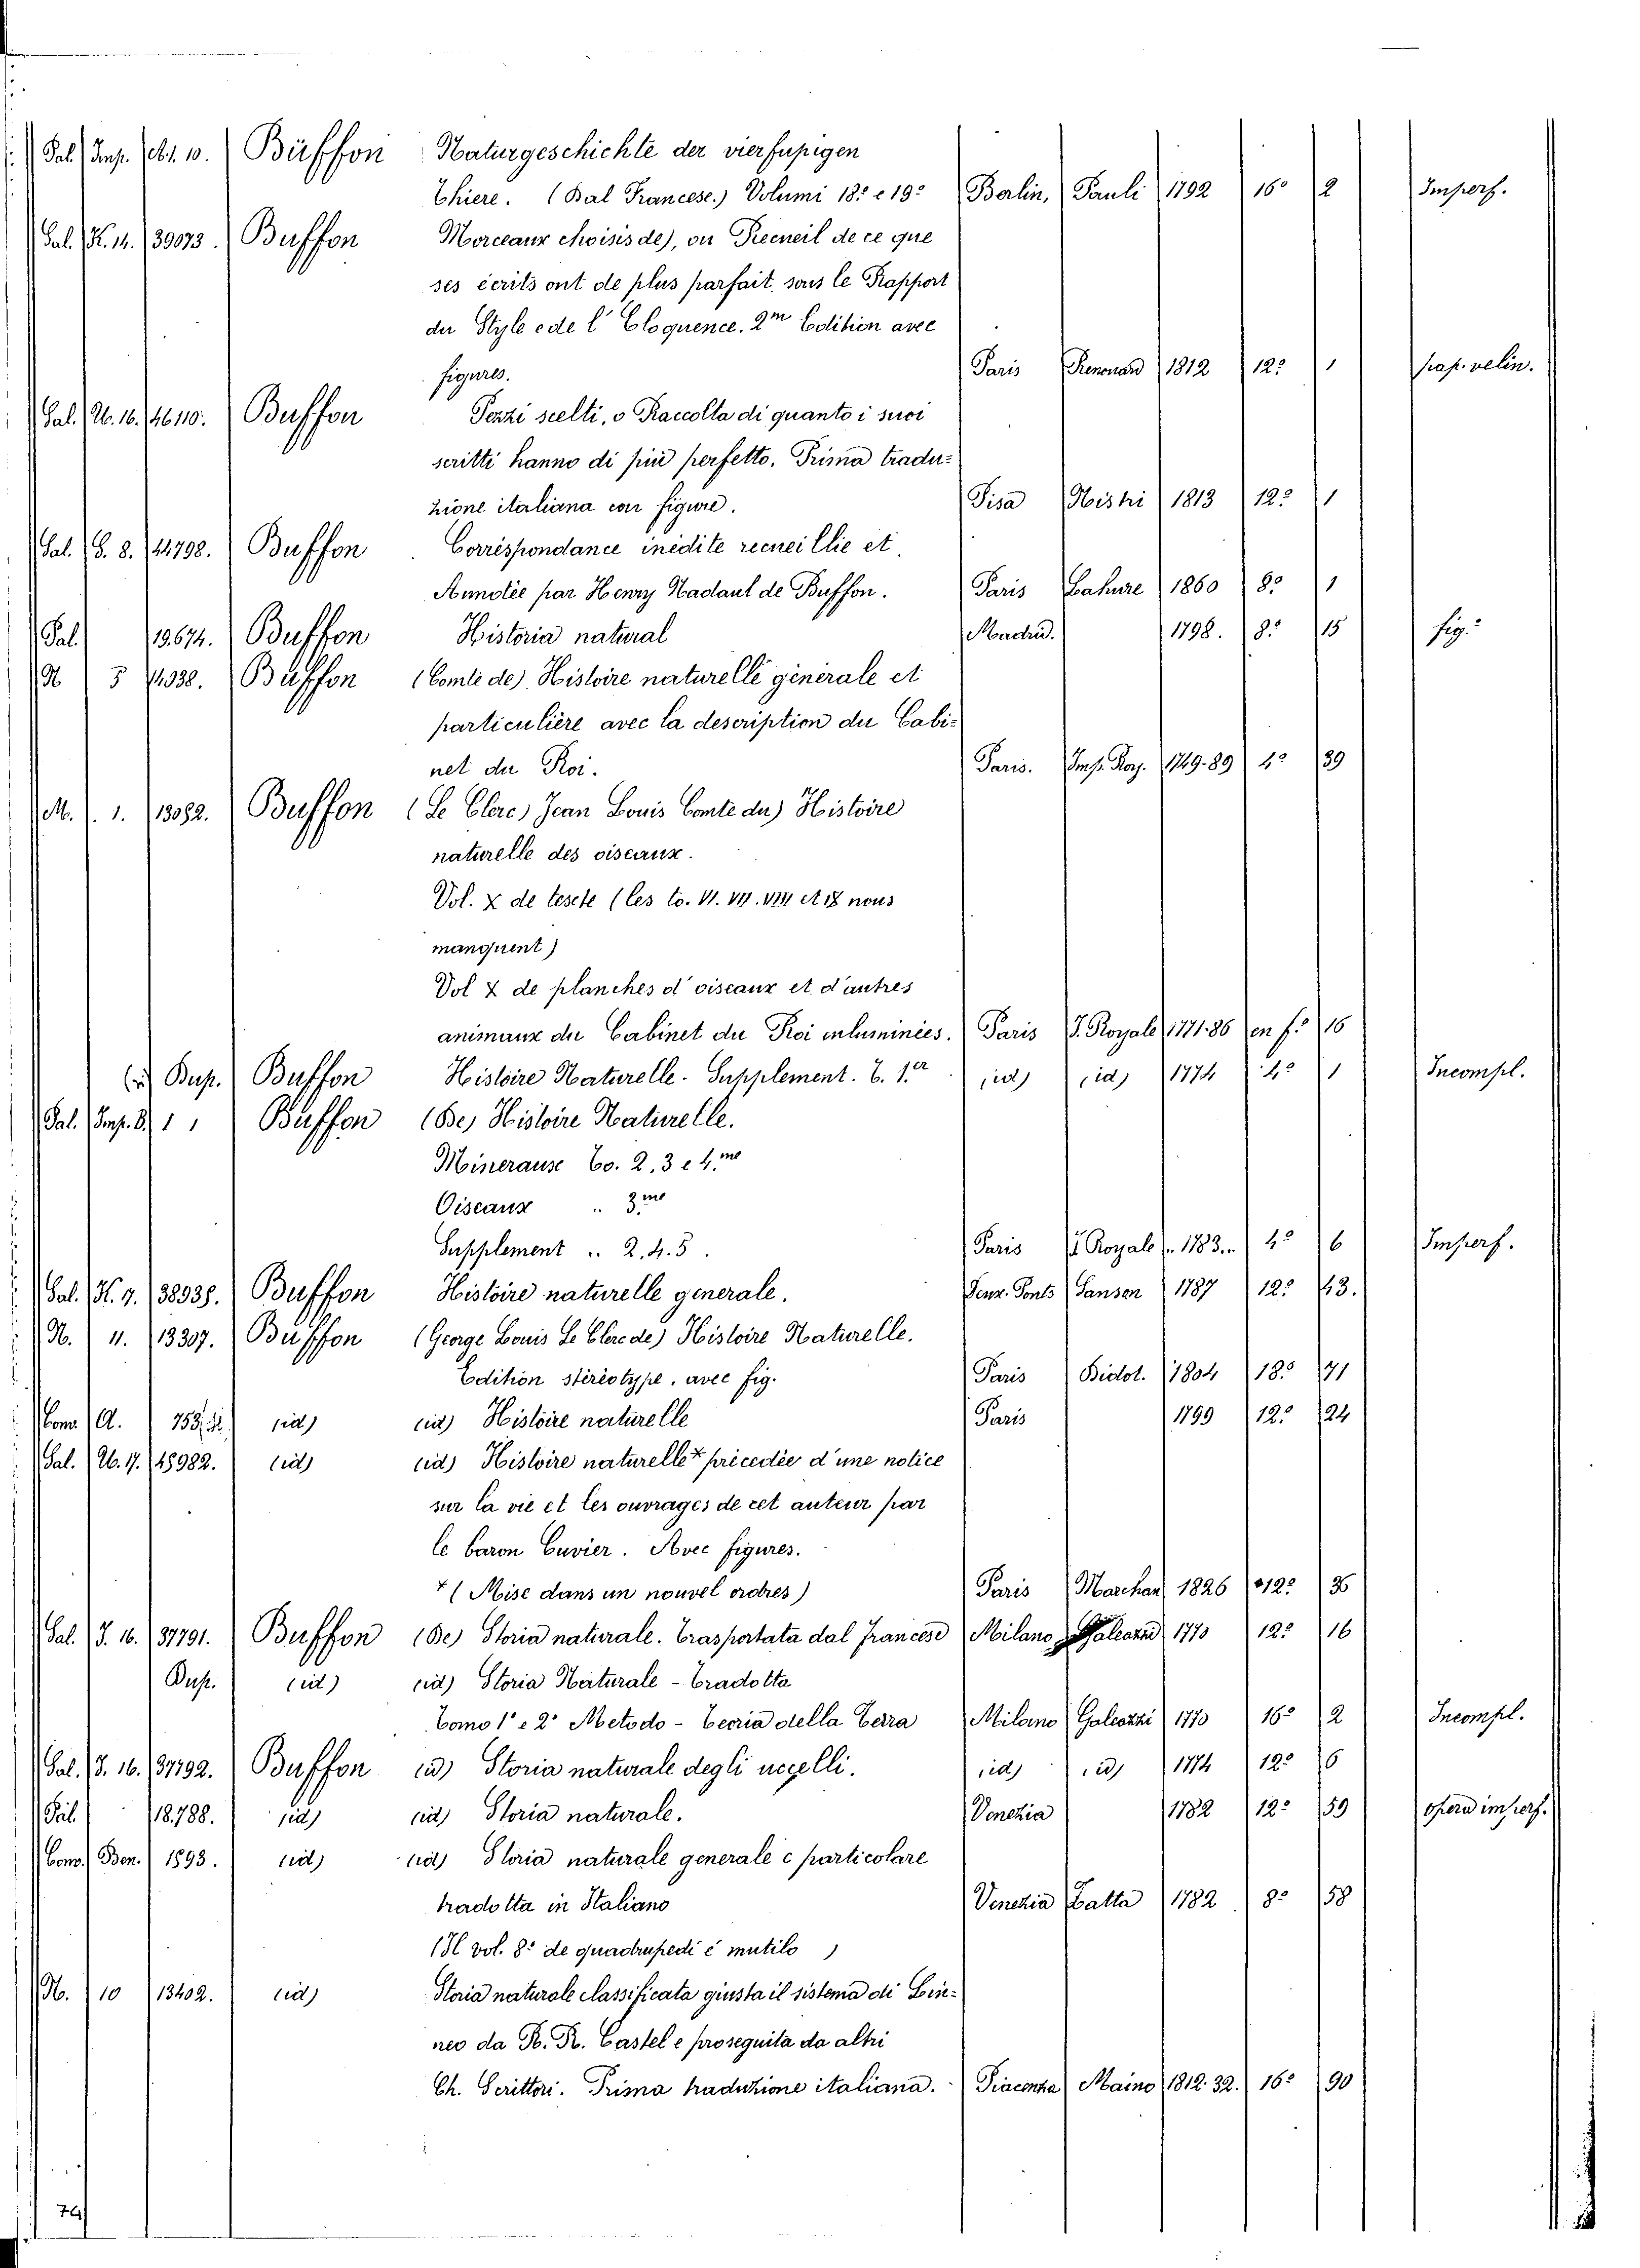 Sal. Imp. 10. Büffon Naturgeschichte der vierfupigen
Thiere. (Dal Francese.) Volumi 18º e 19º Berlin, Pauli 1792 16º 2 Imperf.
Sal. K. 14. 39073. Buffon Morceaux choisis de), ou Recueil de ce que
ses écrits ont de plus parfait, sous le Rapport
du Style e de l'Eloquence. 2m Edition avec
figures. Paris Renouard 1812 12º 1 pap. velin.
Sal. 16. 4610. Buffon Pezzi scelti, o Raccolta di quanto i suoi
scritti hanno di più perfetto. Prima tradu-
zione italiana con figure. Pisa Nistri 1813 12º 1
Sal. 8. 41798. Buffon Correspondance inédite recueillie et
Annotée par Henry Nadault de Buffon. Paris Lahure 1860 8º 1
Sal. 19674. Buffon Historia natural Madrid. 1798. 8º 15 fig.
N 5 Buffon (Comte de) Histoire naturelle générale et
particulière avec la description du Cabi-
net du Roi. Paris. Imp. Roy. 1749-89 4º 39
M. 1. 13082. Buffon (Le Clerc) Jean Louis Comte du) Histoire
naturelle des oiseaux.
Vol. X de texte (les to. VI. VII. VIII et IX nous
manquent)
Vol X de planches d'oiseaux et d'autres
animaux du Cabinet du Roi enluminées. Paris I. Royale 1771-86 en f.º 16
Dup. Buffon Histoire Naturelle. Supplement. T. 1er (id) (id) 1774 4º 1 Incompl.
Sal. Imp. 1 Buffon (De) Histoire Naturelle.
Mineraux To. 2, 3 e 4me
Oiseaux " 3me
Supplement " 2. 4. 5. Paris I. Royale 1783.. 4º 6 Imperf.
Sal. K. 7. 38938. Buffon Histoire naturelle generale. Deux. Ponts Sanson 1787 12º 43.
N. 11. 13307. Buffon (George Louis Le Clerc de) Histoire Naturelle.
Edition stéréotype, avec fig. Paris Didot. 1804 18º 71
Com. A. (id) (id) Histoire naturelle Paris 1799 12º 24
Sal. 17. 48982. (id) (id) Histoire naturelle + précedée d'une notice
sur la vie et les ouvrages de cet auteur par
le baron Cuvier. Avec figures.
+ (Mise dans un nouvel ordres) Paris Marchan 1826 12º 36
Sal. J. 16. 37791. Buffon (De) Storia naturale. Trasportata dal francese Milano Galeazzi 1770 12º 16
Dup. (id) (id) Storia Naturale - Tradotta
Tomo 1º e 2º Metodo - Teoria della Terra Milano Galeazzi 1770 16º 2 Incompl.
Sal. J. 16. 37792. Buffon (id) Storia naturale degli uccelli. (id) (id) 1774 12º 6
Sal. 18.788. (id) (id) Storia naturale. Venezia 1782 12º 59 opera imperf.
Com. Ben. 1893. (id) (id) Storia naturale generale e particolare
tradotta in Italiano Venezia Zatta 1782 8º 58
(Il vol. 8º de quadrupedi è mutilo)
N. 10 13402. (id) Storia naturale classificata giusta il sistema di Lin-
neo da R. R. Castel e proseguita da altri
Ch. Scrittori. Prima traduzione italiana. Piacenza Maino 1812. 32. 16º 90